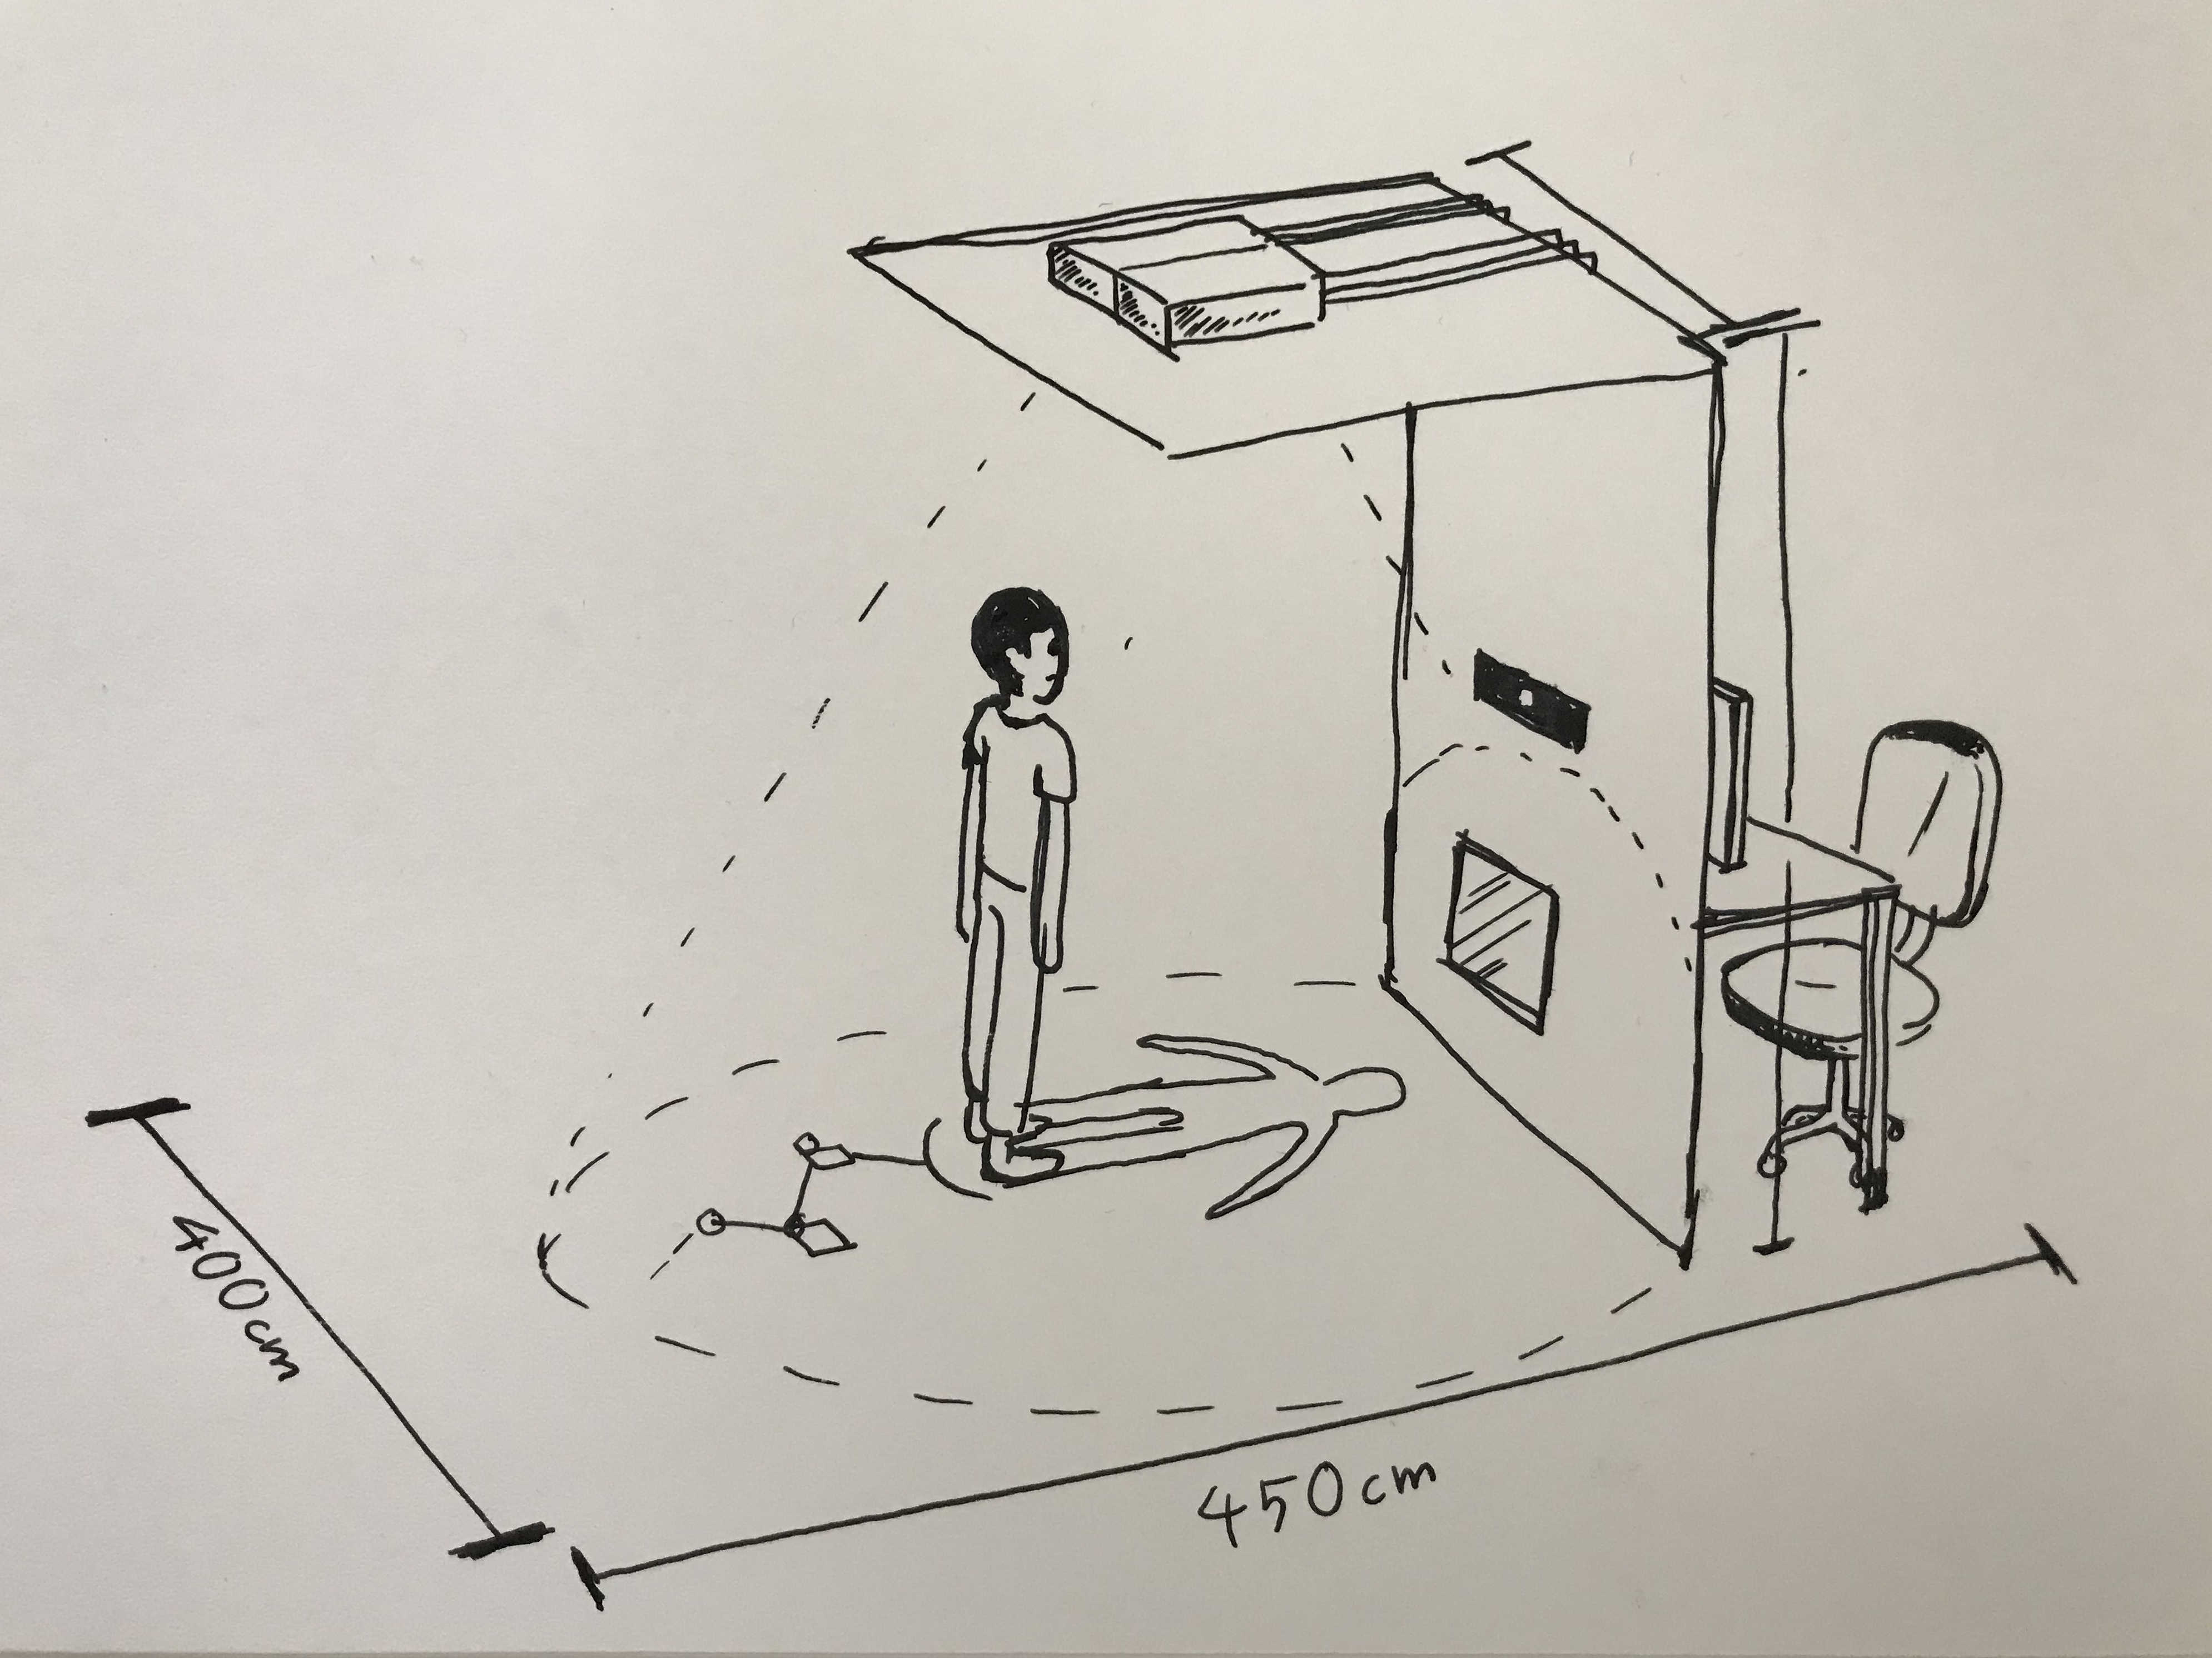 400cm
450cm